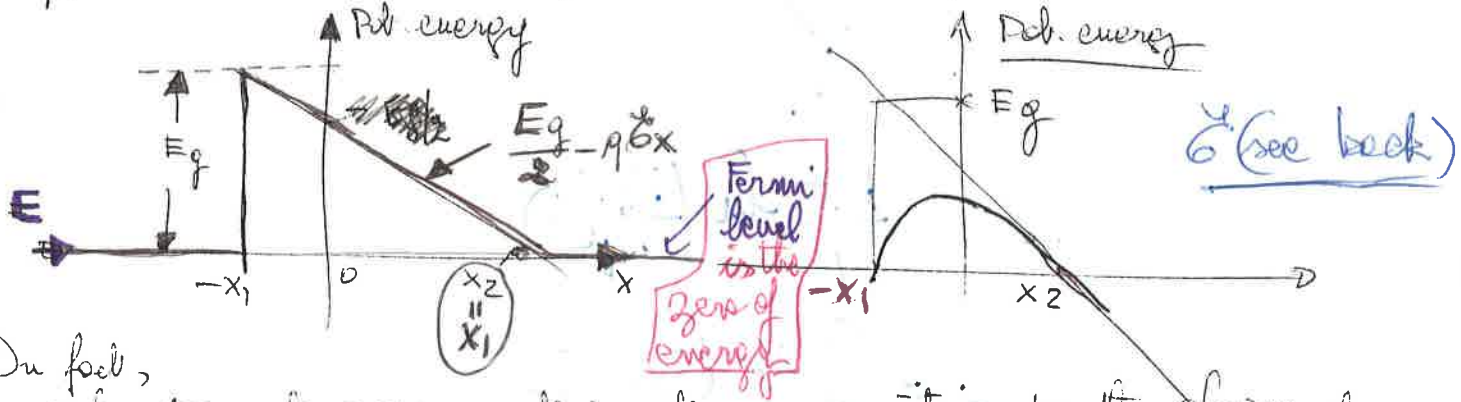 Pot. energy
Eg
Eg/2 - qℰx
E
-x₁
0
x₂
=
x₁
x
Fermi
level
is the
zero of
energy
Pot. energy
Eg
ℰ (see back)
-x₁
x₂
In fact,